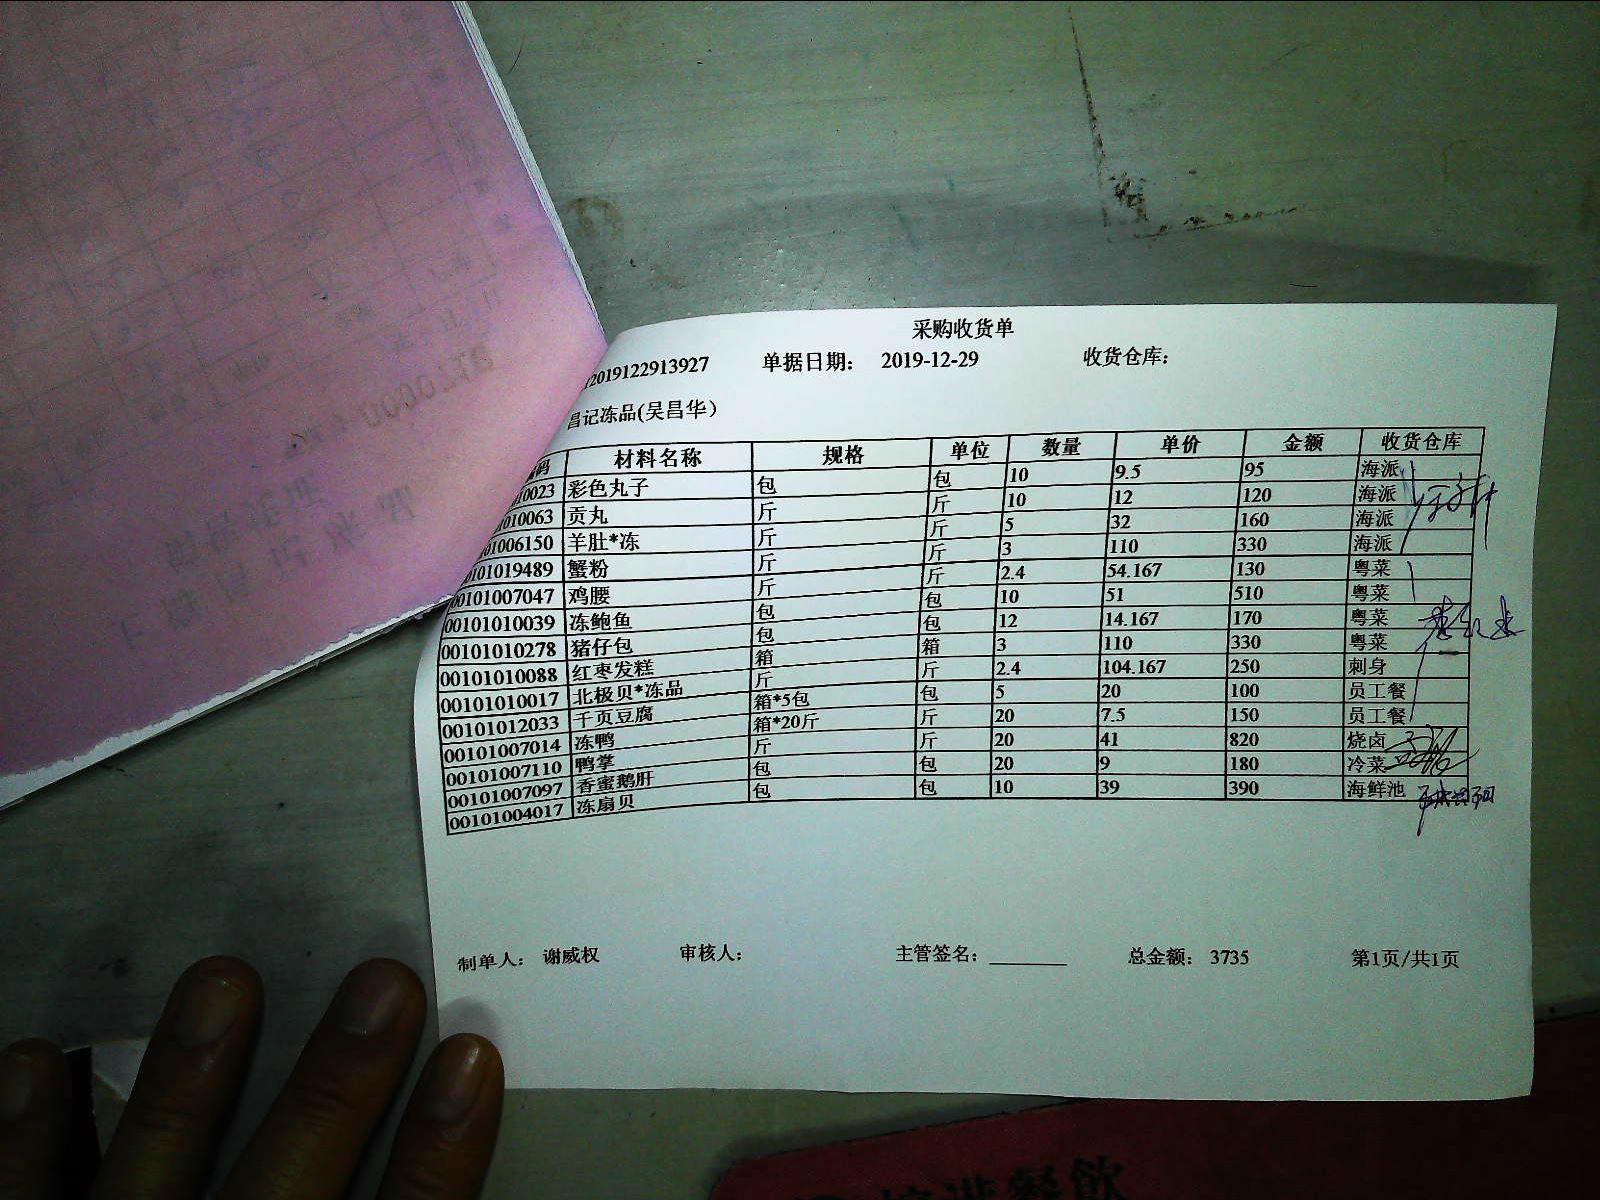 采购收货单
2019122913927 单据日期： 2019-12-29 收货仓库：
昌记冻品(吴昌华)
码 材料名称 规格 单位 数量 单价 金额 收货仓库
10023 彩色丸子 包 包 10 9.5 95 海派
010063 贡丸 斤 斤 10 12 120 海派
01006150 羊肚*冻 斤 斤 5 32 160 海派
0101019489 蟹粉 斤 斤 3 110 330 海派
00101007047 鸡腰 斤 斤 2.4 54.167 130 粤菜
00101010039 冻鲍鱼 包 包 10 51 510 粤菜
00101010278 猪仔包 包 包 12 14.167 170 粤菜
00101010088 红枣发糕 箱 箱 3 110 330 粤菜
00101010017 北极贝*冻品 斤 斤 2.4 104.167 250 刺身
00101012033 千页豆腐 箱*5包 包 5 20 100 员工餐
00101007014 冻鸭 箱*20斤 斤 20 7.5 150 员工餐
00101007110 鸭掌 斤 斤 20 41 820 烧卤
00101007097 香蜜鹅肝 包 包 20 9 180 冷菜
00101004017 冻扇贝 包 包 10 39 390 海鲜池
制单人： 谢威权 审核人： 主管签名：________ 总金额： 3735 第1页/共1页